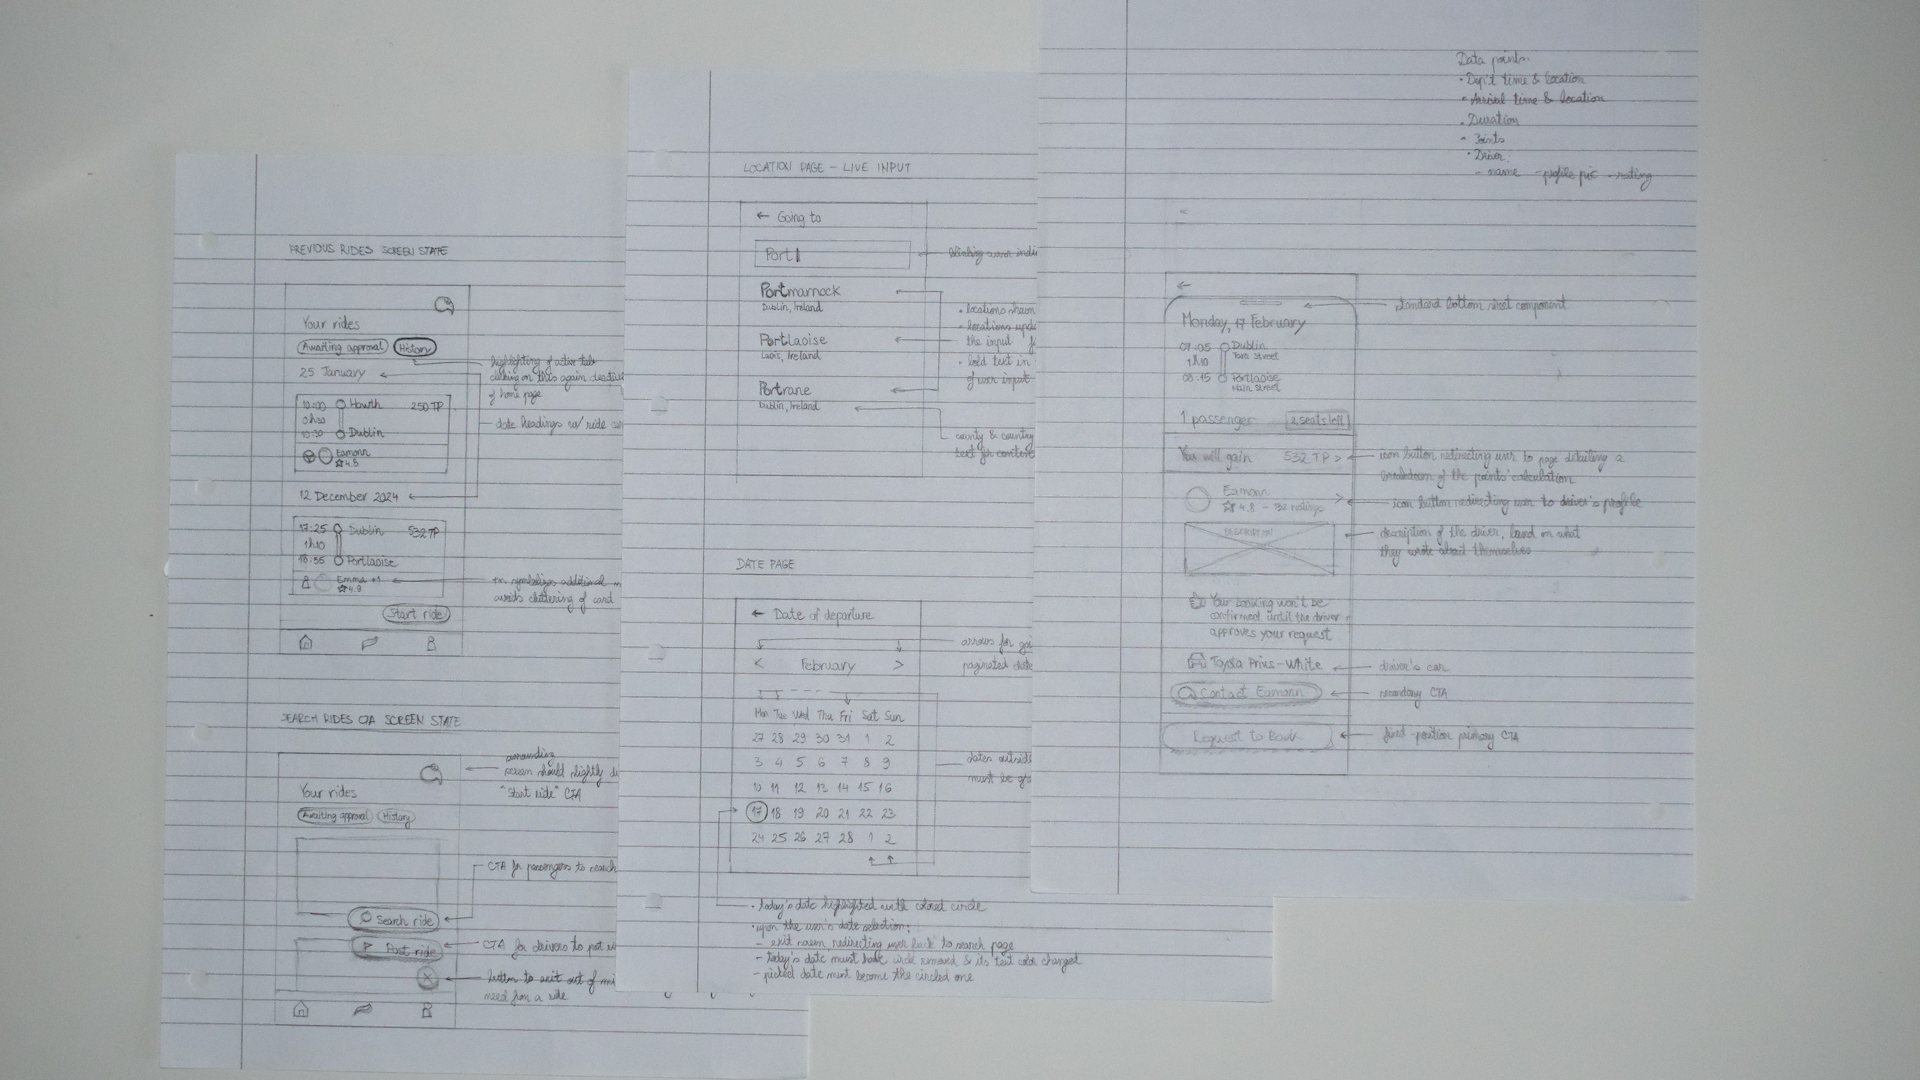 PREVIOUS RIDES SCREEN STATE
Your rides
Awaiting approval
History
highlighting of active tab
clicking on this again
of home page
25 January
10:00 Howth 250 TP
0h30
10:30 Dublin
Eamonn
4.5
date headings w/ ride
12 December 2024
17:25 Dublin 532 TP
1h10
18:35 Portlaoise
Emma +1
4.9
symbolizes additional
avoids cluttering of card
Start ride
SEARCH RIDES CTA SCREEN STATE
surrounding
screen should slightly
"Start ride" CTA
Your rides
Awaiting approval
History
CTA for passengers to search
Search ride
Post ride
CTA for drivers to post
button to exit out of
need for a ride
LOCATION PAGE – LIVE INPUT
← Going to
Port
blinking cursor
Portmarnock
Dublin, Ireland
• locations shown
• locations
the input
• bold text in
of user input
Portlaoise
Laois, Ireland
Portrane
Dublin, Ireland
county & country
text for context
DATE PAGE
← Date of departure
arrows for
paginated date
< February >
Mon Tue Wed Thu Fri Sat Sun
27 28 29 30 31 1 2
3 4 5 6 7 8 9
10 11 12 13 14 15 16
17 18 19 20 21 22 23
24 25 26 27 28 1 2
dates outside
must be
• today's date highlighted with colored circle
• upon the user's date selection:
– exit screen, redirecting user back to search page
– today's date must have circle removed & its text color changed
– picked date must become the circled one
Data points:
• Dep't time & location
• Arrival time & location
• Duration
• Points
• Driver:
– name – profile pic – rating
←
standard bottom sheet component
Monday, 17 February
07:05 Dublin
Tara Street
1h10
08:15 Portlaoise
Main Street
1 passenger
2 seats left
You will gain 532 TP >
icon button redirecting user to page detailing a
breakdown of the points' calculation
Eamonn >
4.8 – 132 ratings
icon button redirecting user to driver's profile
DESCRIPTION
description of the driver, based on what
they wrote about themselves
Your booking won't be
confirmed until the driver
approves your request
Toyota Prius – White
driver's car
Contact Eamonn
secondary CTA
Request to Book
fixed-position primary CTA